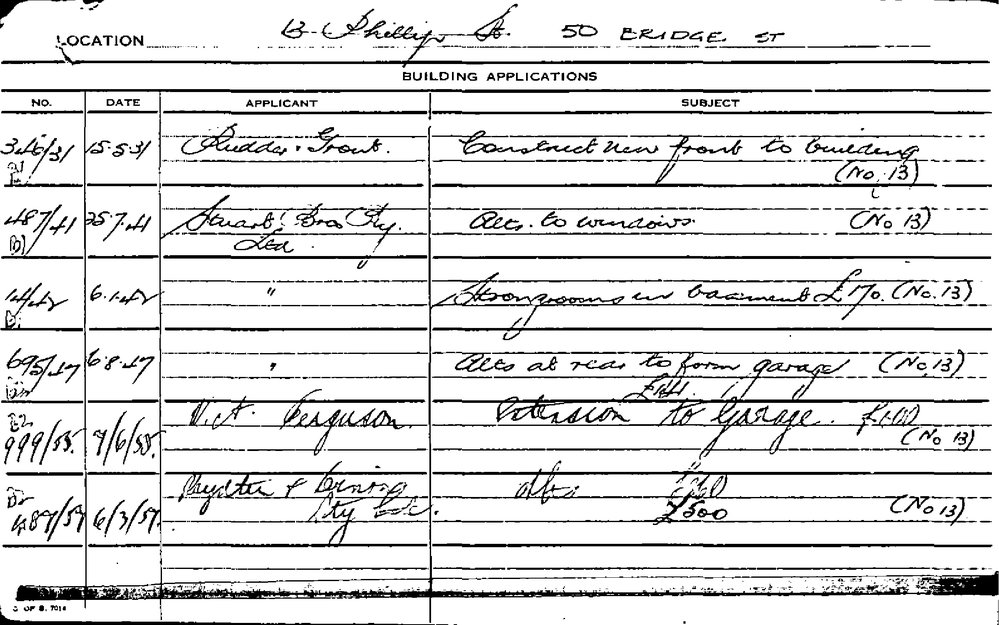 LOCATION 13 Phillip St. 50 BRIDGE ST
BUILDING APPLICATIONS
NO. DATE APPLICANT SUBJECT
346/31 15.5.31 Rudder & Grout. Construct new front to building
(No. 13)
487/41 25.7.41 Stuart Bros Pty. Alts. to windows (No 13)
Ltd.
14/42 6.1.42 " Strongrooms in basement £170. (No. 13)
695/47 6.8.47 " Alts at rear to form garage (No. 13)
999/55. 7/6/55. V.A. Ferguson. Extension to Garage.
(No 13)
487/57 6/3/57. &
Pty £500 (No 13)
C OF S. 7014